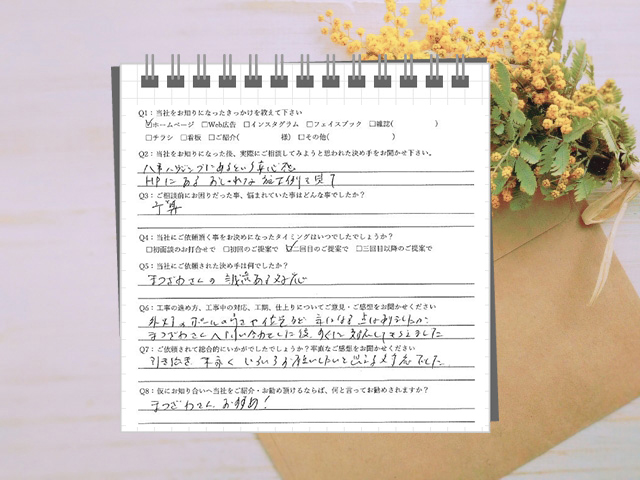 Q1：当社をお知りになったきっかけを教えて下さい
☑ホームページ □Web広告 □インスタグラム □フェイスブック □雑誌( )
□チラシ □看板 □ご紹介( 様) □その他( )
Q2：当社をお知りになった後、実際にご相談してみようと思われた決め手をお聞かせ下さい。
にあるという安心感
HPにあるおしゃれな施工例を見て
Q3：ご相談前にお困りだった事、悩まれていた事はどんな事でしたか？
予算
Q4：当社にご依頼頂く事をお決めになったタイミングはいつでしたでしょうか？
□初面談のお打合せで □初回のご提案で ☑二回目のご提案で □三回目以降のご提案で
Q5：当社にご依頼された決め手は何でしたか？
まつざわさんの誠意ある対応
Q6：工事の進め方、工事中の対応、工期、仕上りについてご意見・ご感想をお聞かせください
ポールの や位置など 気になる点はありましたが
まつざわさんへ問い合わせした後、すぐに対応してもらえました
Q7：ご依頼されて総合的にいかがでしたでしょうか？率直なご感想をお聞かせください
引き続き 末永く いろいろお願いしたいと思える対応でした。
Q8：仮にお知り合いへ当社をご紹介・お勧め頂けるならば、何と言ってお勧めされますか？
まつざわさん おすすめ！